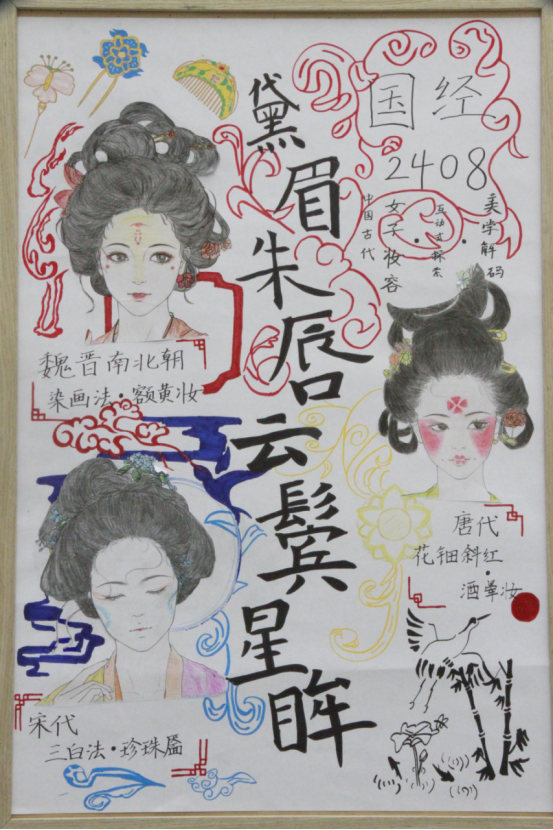 国经
2408
黛眉朱唇云鬓星眸
美学解码
·
互动式探索
·
女子妆容
中国古代
魏晋南北朝
染画法·额黄妆
唐代
花钿斜红
·
酒晕妆
宋代
三白法·珍珠靥